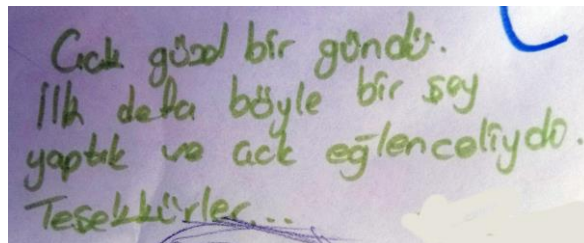 Çok güzel bir gündü.
İlk defa böyle bir şey
yaptık ve çok eğlenceliydo.
Teşekkürler...